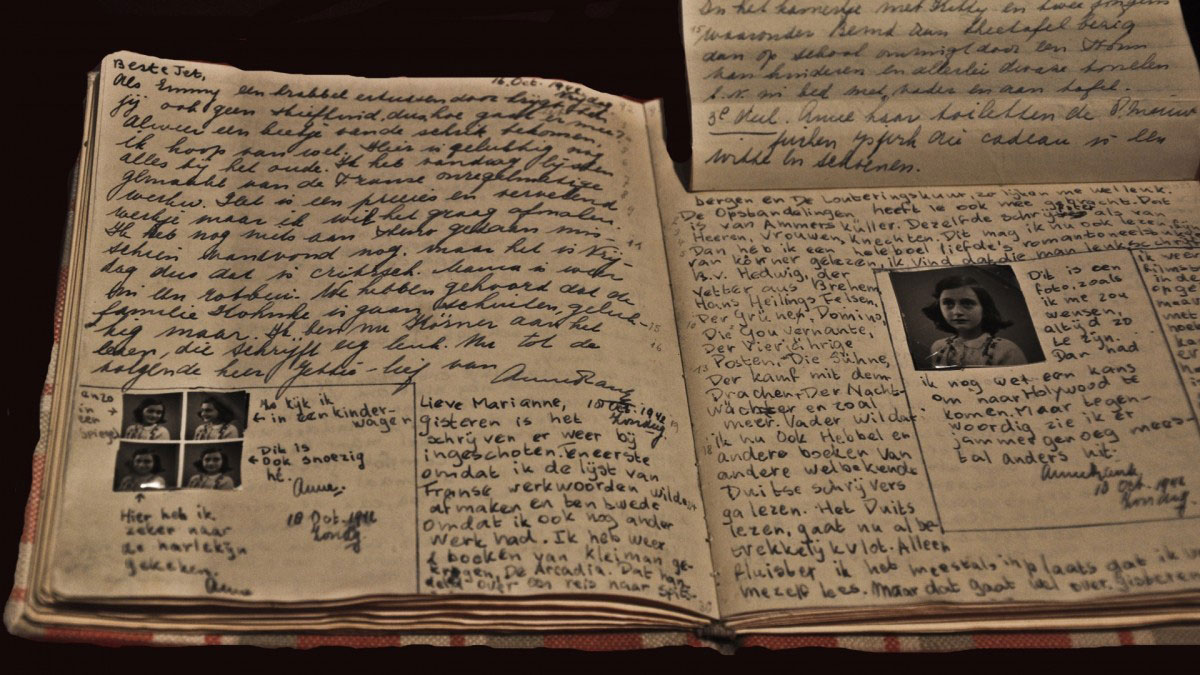 Beste Jet,
16 Oct. 1942
Als Emmy een krabbel ertussen door krijgt heb
jij ook geen stiefkind, dus hoe gaat
Alweer een beetje van de schrik bekomen,
ik hoop van wel. Hier is gelukkig nog
alles bij het oude. Ik heb vandaag lijsten
gemaakt van de Franse onregelmatige
werkw. Het is een precies en vervelend
werkje maar ik wil het graag afmaken.
Ik heb nog niets aan gedaan mis-
schien vanavond nog, maar het is Vrij-
dag dus dat is critisch. Mama is weer
in een We hebben gehoord dat de
familie is gaan schuilen, geluk-
kig maar. Ik ben nu Körner aan het
lezen, die schrijft erg leuk. Nu tot de
volgende keer lief van
Anne Frank
anzo
in
een
spiegel
Zo kijk ik
in zenkinder-
wagen
Dit is
ook snoezig
hè.
Anne.
Hier heb ik
zeker naar
de harlekijn
gekeken.
Anne
18 Oct. 1942
Zondag
Lieve Marianne,
18 Oct. 1942
Zondag.
gisteren is het
schrijven er weer bij
ingeschoten. Teneerste
omdat ik de lijst van
Franse werkwoorden wilde
afmaken en ten twede
omdat ik ook nog ander
werk had. Ik heb weer
2 boeken van kleiman ge-
kregen, De Arcadia. Dat han-
deld over een reis naar Spits-
In het kamertje met Kitty en twee jongens
waaronder Bernd aan theetafel bezig
dan op school omringd door een Stoom
van kinderen en allerlei dwaze tonelen
b.v. in bed met vader en aan tafel.
3e deel. Anne haar toiletten de
die cadeau is een
witte en schoenen.
bergen en De Louteringskuur, zo lijken me wel leuk.
De Opstandelingen heeft ie ook mee gebracht. Dat
is van Ammers Küller. Dezelfde schrijfster als van
Heeren, Vrouwen, Knechten. Dit mag ik nu ook lezen fijn!
Dan heb ik een heleboel liefde's romantoneelstukken
van körner gelezen, ik vind dat die man leuk schrijft
B.v. Hedwig, der
Vetter aus Brehem,
Hans Heilings Felsen,
Der Grüne Domino,
Die Gouvernante,
Der Vierjährige
Posten, Die Sühne,
Der kampf mit dem
Drachen, Der Nacht-
wächter en zoal
meer. Vader wil dat
ik nu ook Hebbel en
andere boeken van
andere welbekende
Duitse schrijvers
ga lezen. Het Duits
lezen, gaat nu al be-
trekkelijk vlot. Alleen
fluister ik het meestal inplaats dat ik voor
mezelf lees. Maar dat gaat wel over. gisteren
Dit is een
foto, zoals
ik me zou
wensen,
altijd zo
te zijn.
Dan had
ik nog wel een kans
om naar Holywood te
komen. Maar tegen-
woordig zie ik er
jammer genoeg mees-
tal anders uit.
Annefrank
18 Oct. 1942
Zondag